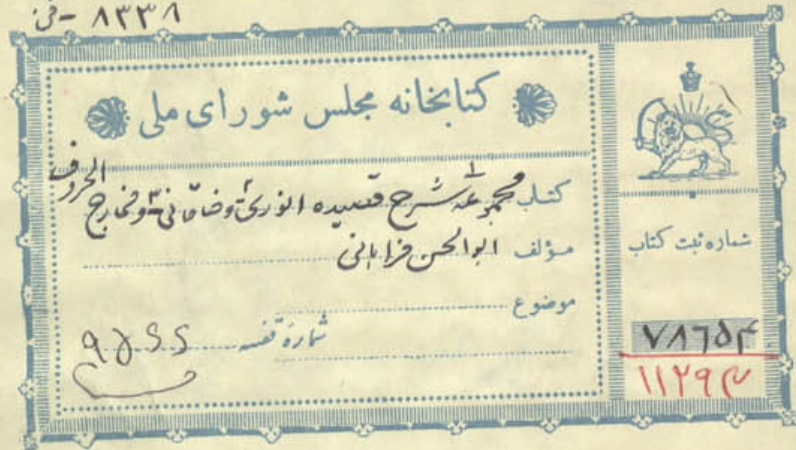 ۸۳۳۸ - فن
کتابخانه مجلس شورای ملی
کتاب مجموعه ۱ شرح قصیده انوری ۲ و خاقانی ۳ و مخارج الحروف
مؤلف ابوالحسن فراهانی
موضوع
شماره قفسه ۹۶۵۵
شماره ثبت کتاب
۷۸۶۵۴
۱۱۲۹۴